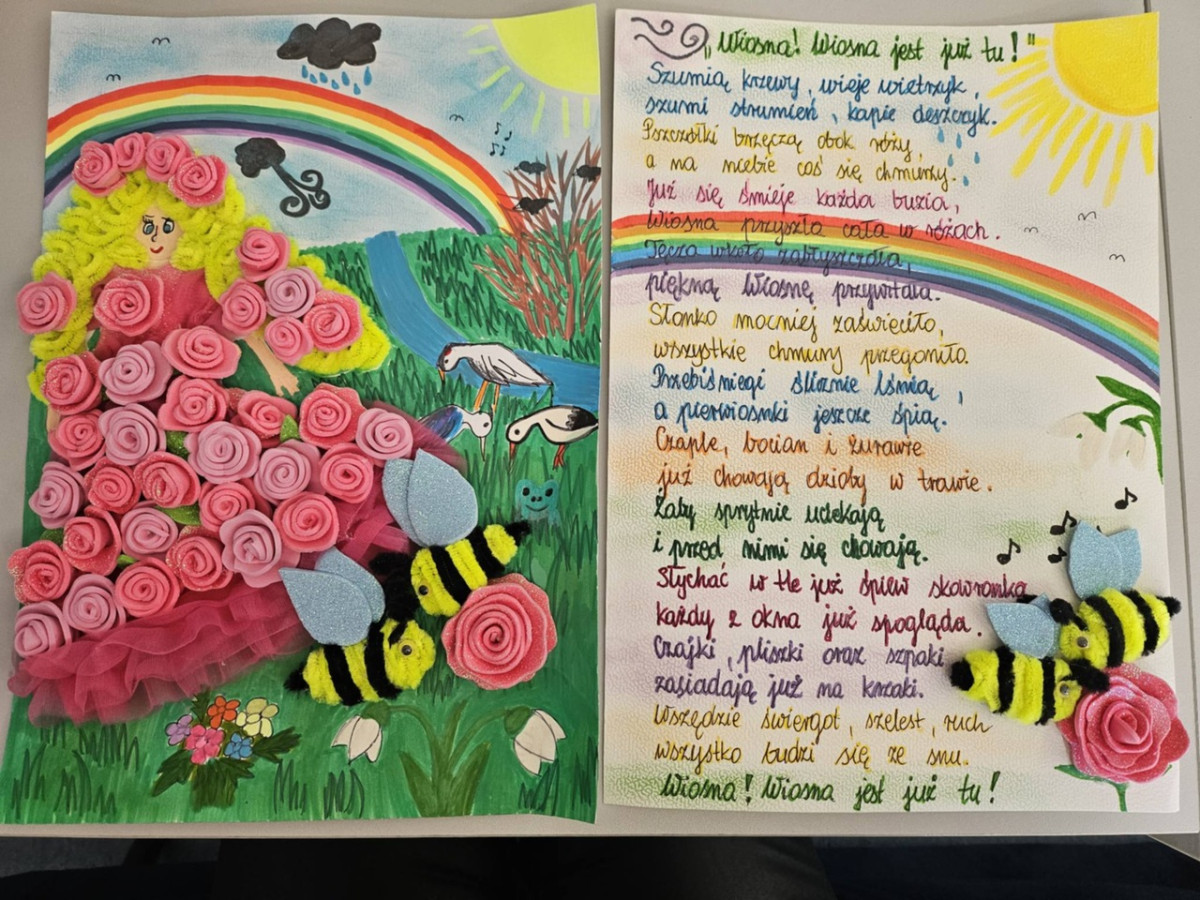 "Wiosna! Wiosna jest już tu!"
Szumią krzewy, wieje wietrzyk,
szumi strumień, kapie deszczyk.
Pszczółki brzęczą obok róży,
a na niebie coś się chmurzy.
Już się śmieje każda buzia,
Wiosna przyszła cała w różach.
Tęcza wkoło zabłyszczała,
piękną Wiosnę przywitała.
Słonko mocniej zaświeciło,
wszystkie chmury przegoniło.
Przebiśniegi ślicznie lśnią,
a pierwiosnki jeszcze śpią.
Czaple, bocian i żurawie
już chowają dzioby w trawie.
Żaby sprytnie uciekają
i przed nimi się chowają.
Słychać w tle już śpiew skowronka,
każdy z okna już spogląda.
Czajki, pliszki oraz szpaki
zasiadają już na krzaki.
Wszędzie świergot, szelest, ruch
wszystko budzi się ze snu.
Wiosna! Wiosna jest już tu!